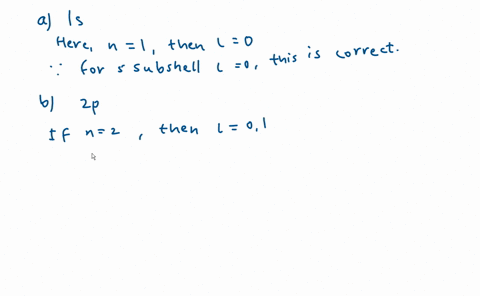 a) 1s
Here, n=1, then l=0
∵ for s subshell l=0, this is correct.
b) 2p
If n=2, then l=0,1